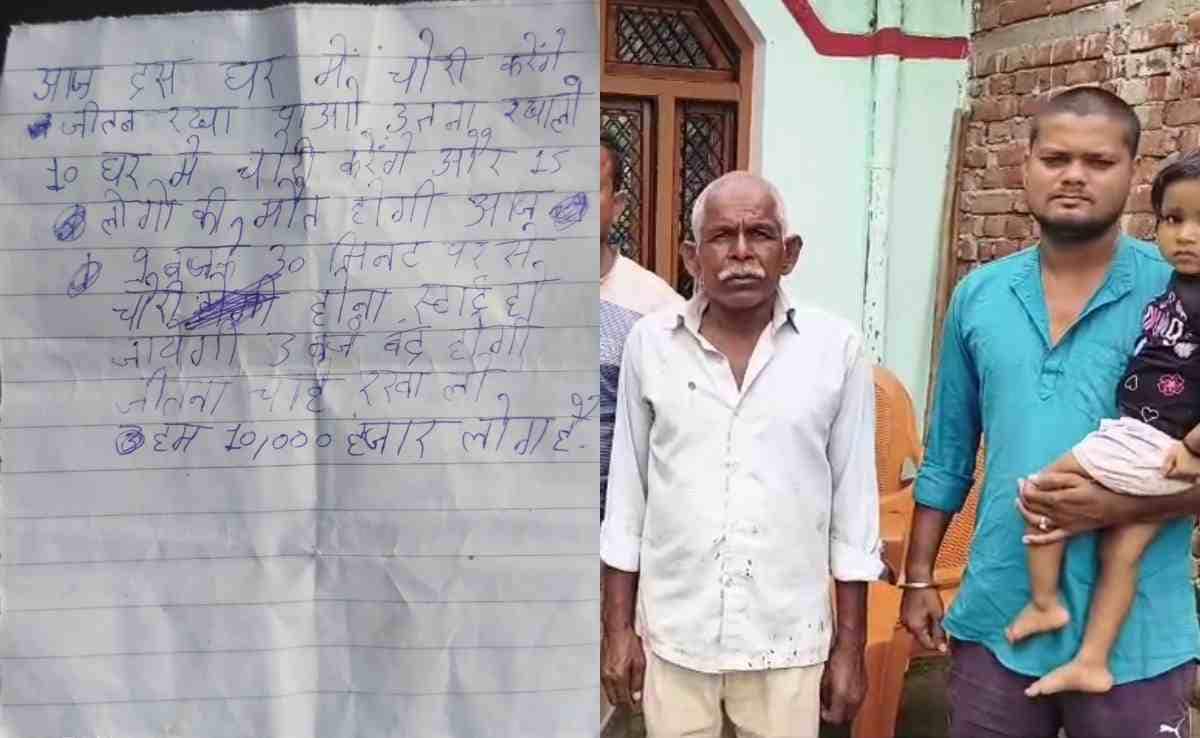 आज इस घर में चोरी करेंगे
जीतन रखा पाओ उतना रखालो
10 घर मे चोरी करेंगे और 15
लोगो की मौत होगी आज
बजके 30 मिनट पर से
चोरी होना स्टार्ट हो
जायगी 3 बजे बंद होगी
जीतना चाहे रखा लो
हम 10,000 हजार लोग है.